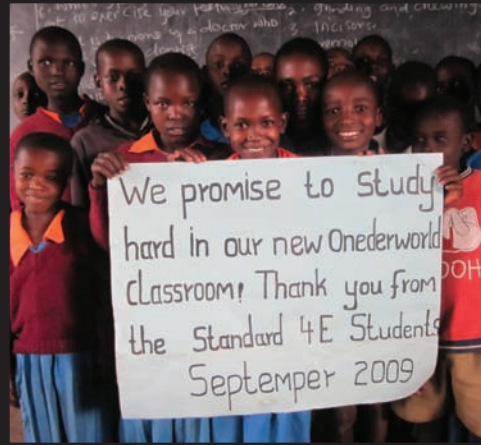 grinding and chewing
to exercise your
a doctor who 2. incisors
We promise to study
hard in our new Onederworld
classroom! Thank you from
the Standard 4E Students
Septemper 2009
OOH